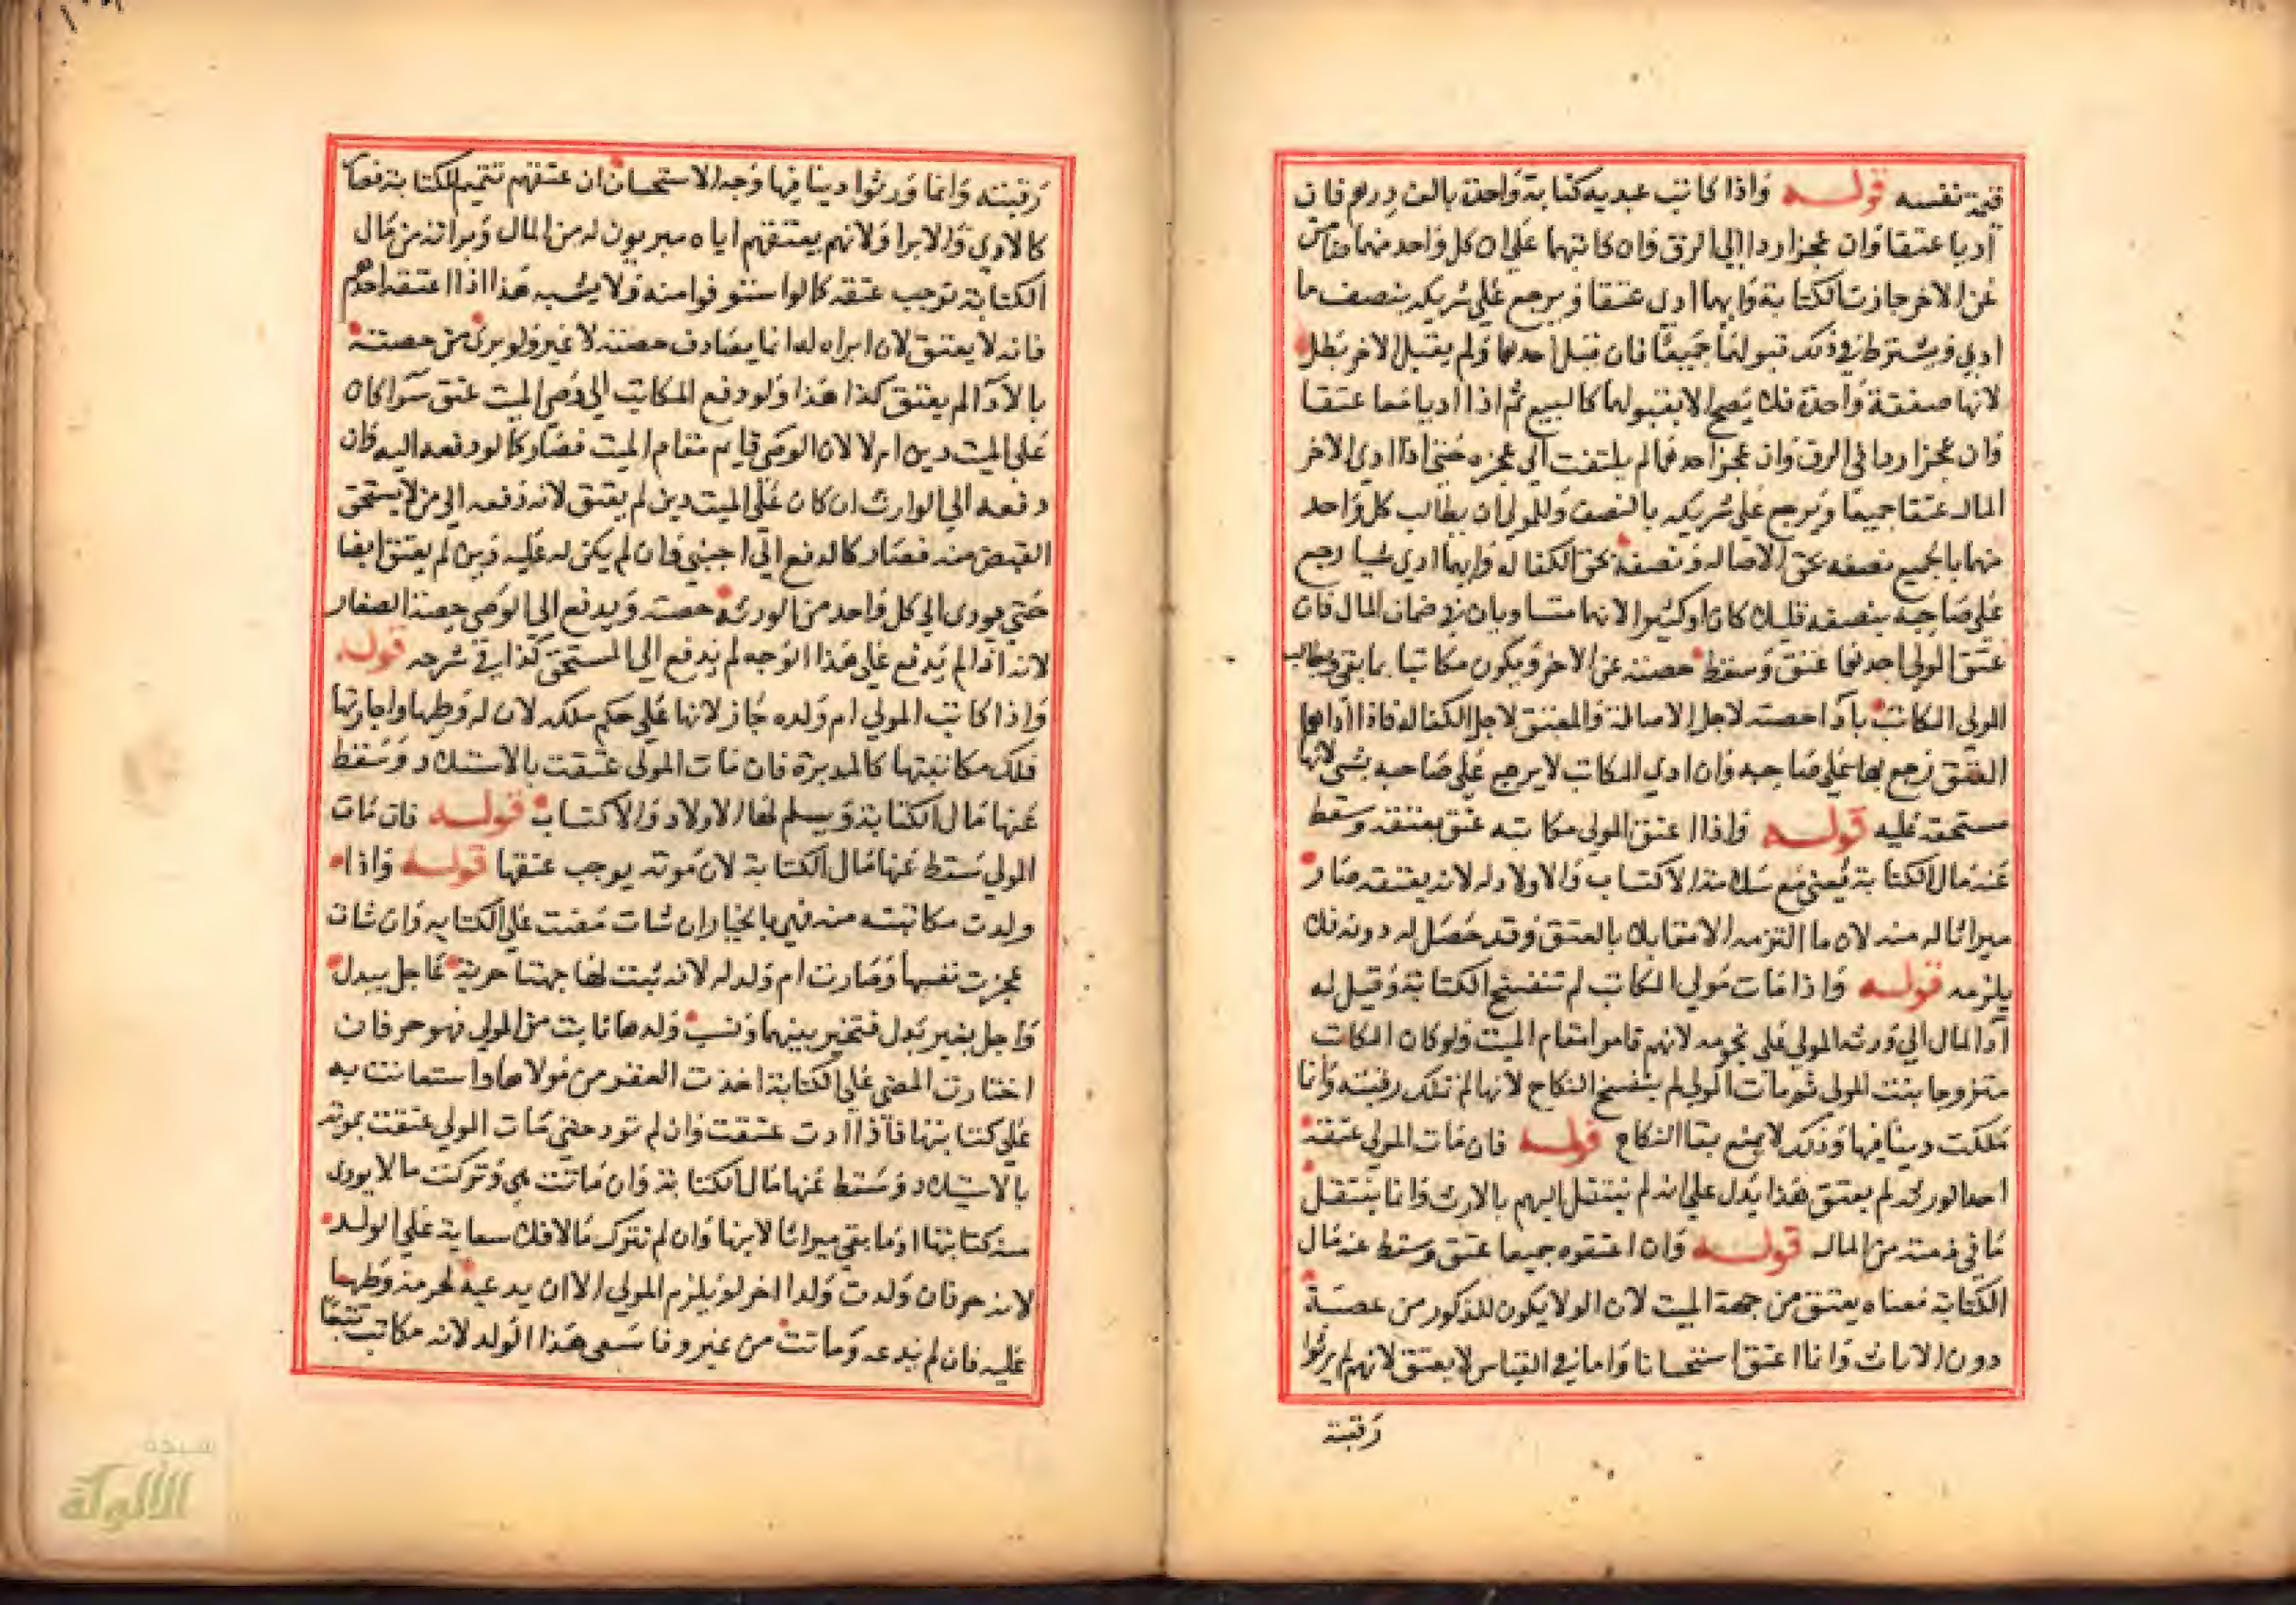 قيمة نفسه قوله واذا كاتب عبديه كتابة واحدة بالف درهم فان
أديا عتقا وان عجزا ردا الي الرق وان كاتبهما علي ان كل واحد منهما ضامن
عن الاخر جازت الكتابة وايهما ادي عتقا ويرجع علي شريكه بنصف ما
ادي ويشترط في ذلك قبولهما جميعًا فان قبل احدهما ولم يقبل الاخر بطل
لانها صفقة واحدة فلا يصح الا بقبولهما كالبيع ثم اذا اديا معا عتقا
وان عجزا ردا في الرق وان عجز احدهما لم يلتفت الي عجزه حتي اذا ادي الاخر
المال عتقا جميعا ويرجع علي شريكه بالنصف وللمولي ان يطالب كل واحد
منهما بالجميع نصفه بحق الاصاله ونصفه بحق الكفاله وايهما ادي شيا رجع
علي صاحبه بنصفه قليلا كان او كثيرا لانهما متساويان في ضمان المال فان
عتق المولي احدهما عتق وسقط حصته عن الاخر ويكون مكاتبا بما بقي ويطالب
المولي المكاتب بادا حصته لاجل الاصالة والمعتق لاجل الكفالة فاذا اداها
العتق رجع بها علي صاحبه وان ادي المكاتب لا يرجع علي صاحبه بشي لانها
مستحقة عليه قوله واذا اعتق المولي مكاتبه عتق بعتقه وسقط
عنه مال الكتابة يعني مع سلامة الاكتساب والاولاد له لانه بعتقه صار
ميراثا له منه لان ما التزمه الا مقابلا بالعتق وقد حصل له دونه فلا
يلزمه قوله واذا مات مولي المكاتب لم تنفسخ الكتابة وقيل له
أدا المال الي ورثة المولي علي نجومه لانهم قاموا مقام الميت ولو كان المكاتب
متزوجا بنت المولي ثم مات المولي لم ينفسخ النكاح لانها لم تملك رقبته وانما
ملكت دينا فيها وذلك لا يمنع بقا النكاح قوله فان مات المولي عتقه
احد الورثه لم يعتق هذا يدل علي انه لم ينتقل اليهم بالارث وانما ينتقل
ما في ذمته من المال قوله وان اعتقوه جميعا عتق وسقط عنه مال
الكتابة معناه يعتق من جهة الميت لان الولا يكون للذكور من عصبة
دون الاناث وانما اعتق استحسانا واما في القياس لا يعتق لانهم لم يرثوا
رقبته
رقبته وانما ورثوا دينا فيها وجه الاستحسان ان عتقهم تتميم للكتابة فصار
كالادي والابرا ولانهم بعتقهم اياه مبريون له من المال وبراته من مال
الكتابة توجب عتقه كما لو استوفوا منه ولا يشبه هذا اذا اعتقه احدهم
فانه لا يعتق لان ابراه له انما يصادف حصته لا غير ولو بري من حصته
بالادا لم يعتق كذا هذا ولو دفع المكاتب الي وصي الميت عتق سوا كان
علي الميت دين ام لا لان الوصي قايم مقام الميت فصار كما لو دفعه اليه فان
دفعه الي الوارث ان كان علي الميت دين لم يعتق لانه دفعه الي من لا يستحق
القبض منه فصار كالدفع الي اجنبي فان لم يكن له عليه دين لم يعتق ايضا
حتي يودي الي كل واحد من الورثه حصته ويدفع الي الوصي حصة الصغار
لانه اذا لم يدفع علي هذا الوجه لم يدفع الي المستحق كذا في شرحه قوله
واذا كاتب المولي ام ولده جاز لانها علي حكم ملكه لان له وطيها واجارتها
فملك مكاتبتها كالمدبرة فان مات المولي عتقت بالاستيلاد وسقط
عنها مال الكتابة ويسلم لها الاولاد والاكتساب قوله فان مات
المولي سقط عنها مال الكتابة لان موته يوجب عتقها قوله واذا
ولدت مكاتبته منه فهي بالخيار ان شات مضت علي الكتابه وان شات
عجزت نفسها وصارت ام ولد له لانه ثبت لها جهتا حرية عاجل ببدل
واجل بغير بدل فتخير بينهما ونسب ولدها ثابت من المولي فهو حر فان
اختارت المضي علي الكتابة اخذت العقر من مولاها واستعانت به
علي كتابتها فاذا ادت عتقت وان لم تود حتي مات المولي عتقت بموته
بالاستيلاد وسقط عنها مال الكتابة وان ماتت هي وتركت مالا يودي
منه كتابتها وما بقي ميراثا لابنها وان لم تترك مالا فلا سعاية علي الولد
لانه حر فان ولدت ولدا اخر لم يلزم المولي الا ان يدعيه لحرمة وطيها
عليه فان لم يدعه وماتت من غير وفا سعي هذا الولد لانه مكاتب تبعًا
شبكة
الألوكة